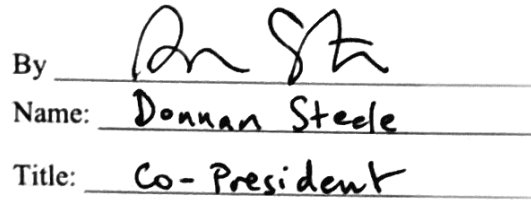 By
Name: Donnan Steele
Title: Co-President